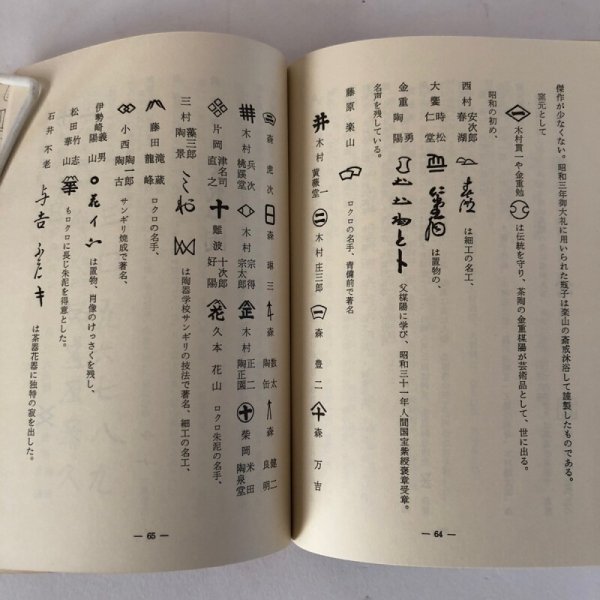 傑作が少なくない。昭和三年御大礼に用いられた瓶子は楽山の斎戒沐浴して謹製したものである。
窯元として
木村貫一や金重勉 は伝統を守り、茶陶の金重楳陽が芸術品として、世に出る。
昭和の初め、
西村 安次郎 春湖 は細工の名工、
大饗 時松 仁堂 は置物の、
金重 勇 陶陽 父楳陽に学び、昭和三十一年人間国宝紫綬褒章受章。
名声を残している。
藤原 楽山 ロクロの名手、青備前で著名
木村 黄薇堂 一 木村 庄三郎 森 豊二 森 万吉
— 64 —
森 虎次 森 琳三 森 数太 陶缶 森 健二 良明
木村 兵次 桃蹊堂 木村 宗得 宗太郎 木村 正二 陶正園 柴岡 米田 陶泉堂
片岡 津名司 直之 難波 十次郎 好陽 久本 花山 ロクロ朱泥の名手、
三村 藻三郎 陶景 は陶器学校サンギリの技法で著名、細工の名工、
藤田 滝蔵 龍峰 ロクロの名手、
小西 陶一郎 陶古 サンギリ焼成で著名、
伊勢崎 義男 陽山 は置物、肖像のけっさくを残し、
松田 竹志 華山 もロクロに長じ朱泥を得意とした。
石井 不老 は茶器花器に独特の寂を出した。
— 65 —